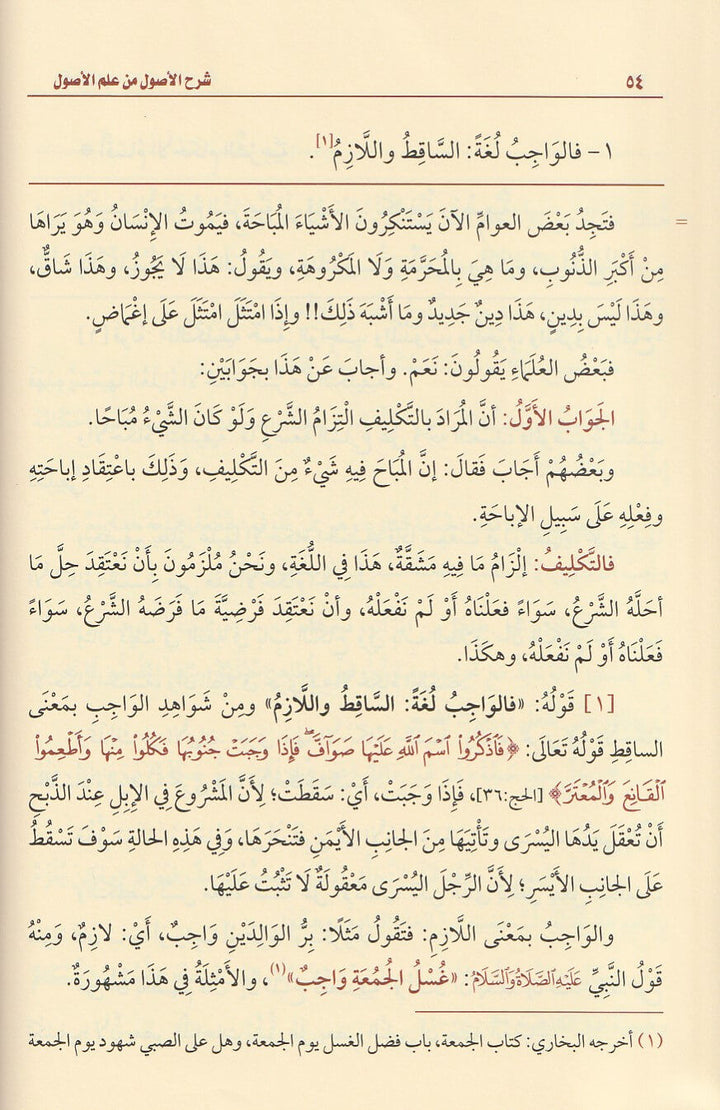 ٥٤ شرح الأصول من علم الأصول
١- فالوَاجِبُ لُغَةً: السَّاقِطُ واللَّازِمُ[١].
= فتَجِدُ بَعْضَ العوامِّ الآنَ يَسْتَنْكِرُونَ الأَشْيَاءَ المُبَاحَةَ، فيَمُوتُ الإِنْسَانُ وَهُوَ يَرَاهَا
مِنْ أَكْبَرِ الذُّنُوبِ، ومَا هِيَ بِالمُحَرَّمَةِ وَلَا المَكْرُوهَةِ، ويَقُولُ: هَذَا لَا يَجُوزُ، وهَذَا شَاقٌّ،
وهَذَا لَيْسَ بِدِينٍ، هَذَا دِينٌ جَدِيدٌ ومَا أَشْبَهَ ذَلِكَ!! وإِذَا امْتَثَلَ امْتَثَلَ عَلَى إغْمَاضٍ.
فبَعْضُ العُلَمَاءِ يَقُولُونَ: نَعَمْ. وأجابَ عَنْ هَذَا بجَوَابَيْنِ:
الجَوَابُ الأَوَّلُ: أنَّ المُرَادَ بالتَّكْلِيفِ الْتِزَامُ الشَّرْعِ وَلَوْ كَانَ الشَّيْءُ مُبَاحًا.
وبَعْضُهُمْ أَجَابَ فقَالَ: إنَّ المُبَاحَ فِيهِ شَيْءٌ مِنَ التَّكْلِيفِ، وَذَلِكَ باعْتِقَادِ إباحَتِهِ
وفِعْلِهِ عَلَى سَبِيلِ الإباحَةِ.
فالتَّكْلِيفُ: إلْزَامُ مَا فِيهِ مَشَقَّةٌ، هَذَا فِي اللُّغَةِ، ونَحْنُ مُلْزَمُونَ بِأَنْ نَعْتَقِدَ حِلَّ مَا
أحَلَّهُ الشَّرْعُ، سَوَاءً فعَلْنَاهُ أَوْ لَمْ نَفْعَلْهُ، وأنْ نَعْتَقِدَ فَرْضِيَّةَ مَا فَرَضَهُ الشَّرْعُ، سَوَاءً
فَعَلْنَاهُ أَوْ لَمْ نَفْعَلْهُ، وهكَذَا.
[١] قَوْلُهُ: «فالوَاجِبُ لُغَةً: السَّاقِطُ واللَّازِمُ» ومِنْ شَوَاهِدِ الوَاجِبِ بمَعْنَى
الساقِطِ قَوْلُهُ تَعَالَى: ﴿فَٱذْكُرُوا۟ ٱسْمَ ٱللَّهِ عَلَيْهَا صَوَآفَّ ۖ فَإِذَا وَجَبَتْ جُنُوبُهَا فَكُلُوا۟ مِنْهَا وَأَطْعِمُوا۟
ٱلْقَانِعَ وَٱلْمُعْتَرَّ﴾ [الحج:٣٦]، فَإِذَا وَجَبَتْ، أَيْ: سَقَطَتْ؛ لِأَنَّ المَشْرُوعَ فِي الإِبِلِ عِنْدَ الذَّبْحِ
أَنْ تُعْقَلَ يَدُهَا اليُسْرَى وتَأْتِيَهَا مِنَ الجانِبِ الأَيْمَنِ فتَنْحَرَهَا، وفِي هَذِهِ الحالةِ سَوْفَ تَسْقُطُ
عَلَى الجانِبِ الأَيْسَرِ؛ لِأَنَّ الرِّجْلَ اليُسْرَى مَعْقُولَةٌ لَا تَثْبُتُ عَلَيْهَا.
والوَاجِبُ بمَعْنَى اللَّازِمِ: فتَقُولُ مَثَلًا: بِرُّ الوَالِدَيْنِ وَاجِبٌ، أَيْ: لازِمٌ، وَمِنْهُ
قَوْلُ النَّبِيِّ عَلَيْهِ الصَّلَاةُ وَالسَّلَامُ: «غُسْلُ الجُمُعَةِ وَاجِبٌ»(١)، والأَمْثِلَةُ فِي هَذَا مَشْهُورَةٌ.
(١) أخرجه البخاري: كتاب الجمعة، باب فضل الغسل يوم الجمعة، وهل على الصبي شهود يوم الجمعة